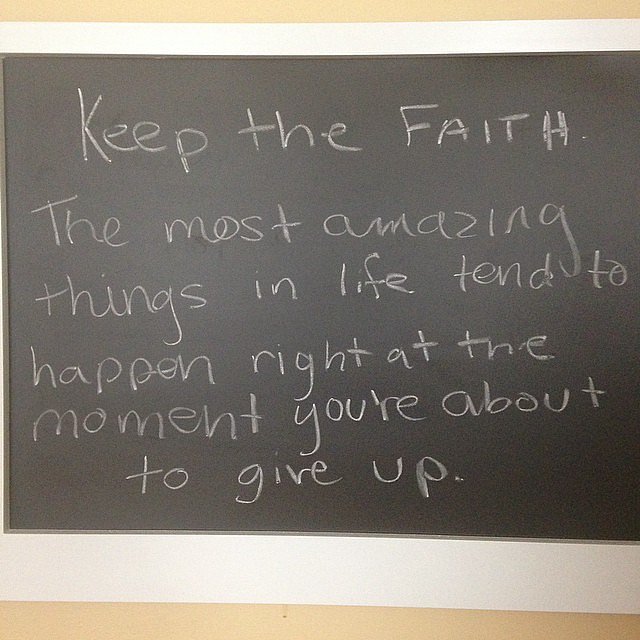 Keep the FAITH.
The most amazing
things in life tend to
happen right at the
moment you're about
to give up.